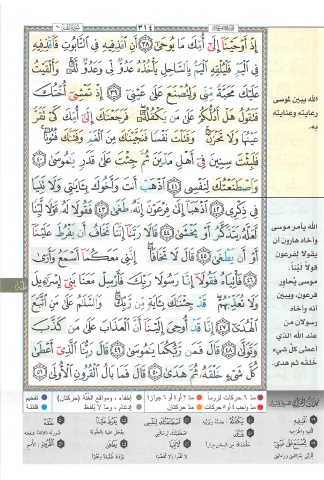 ٣١٤
إِذْ أَوْحَيْنَا إِلَىٰ أُمِّكَ مَا يُوحَىٰ ٣٨ أَنِ اقْذِفِيهِ فِي التَّابُوتِ فَاقْذِفِيهِ
فِي الْيَمِّ فَلْيُلْقِهِ الْيَمُّ بِالسَّاحِلِ يَأْخُذْهُ عَدُوٌّ لِي وَعَدُوٌّ لَهُ وَأَلْقَيْتُ
عَلَيْكَ مَحَبَّةً مِنِّي وَلِتُصْنَعَ عَلَىٰ عَيْنِي ٣٩ إِذْ تَمْشِي أُخْتُكَ
فَتَقُولُ هَلْ أَدُلُّكُمْ عَلَىٰ مَنْ يَكْفُلُهُ فَرَجَعْنَاكَ إِلَىٰ أُمِّكَ كَيْ تَقَرَّ
عَيْنُهَا وَلَا تَحْزَنَ وَقَتَلْتَ نَفْسًا فَنَجَّيْنَاكَ مِنَ الْغَمِّ وَفَتَنَّاكَ فُتُونًا
فَلَبِثْتَ سِنِينَ فِي أَهْلِ مَدْيَنَ ثُمَّ جِئْتَ عَلَىٰ قَدَرٍ يَا مُوسَىٰ ٤٠
وَاصْطَنَعْتُكَ لِنَفْسِي ٤١ اذْهَبْ أَنْتَ وَأَخُوكَ بِآيَاتِي وَلَا تَنِيَا
فِي ذِكْرِي ٤٢ اذْهَبَا إِلَىٰ فِرْعَوْنَ إِنَّهُ طَغَىٰ ٤٣ فَقُولَا لَهُ قَوْلًا لَيِّنًا
لَعَلَّهُ يَتَذَكَّرُ أَوْ يَخْشَىٰ ٤٤ قَالَا رَبَّنَا إِنَّنَا نَخَافُ أَنْ يَفْرُطَ عَلَيْنَا
أَوْ أَنْ يَطْغَىٰ ٤٥ قَالَ لَا تَخَافَا إِنَّنِي مَعَكُمَا أَسْمَعُ وَأَرَىٰ
٤٦ فَأْتِيَاهُ فَقُولَا إِنَّا رَسُولَا رَبِّكَ فَأَرْسِلْ مَعَنَا بَنِي إِسْرَائِيلَ
وَلَا تُعَذِّبْهُمْ قَدْ جِئْنَاكَ بِآيَةٍ مِنْ رَبِّكَ وَالسَّلَامُ عَلَىٰ مَنِ اتَّبَعَ
الْهُدَىٰ ٤٧ إِنَّا قَدْ أُوحِيَ إِلَيْنَا أَنَّ الْعَذَابَ عَلَىٰ مَنْ كَذَّبَ
وَتَوَلَّىٰ ٤٨ قَالَ فَمَنْ رَبُّكُمَا يَا مُوسَىٰ ٤٩ قَالَ رَبُّنَا الَّذِي أَعْطَىٰ
كُلَّ شَيْءٍ خَلْقَهُ ثُمَّ هَدَىٰ ٥٠ قَالَ فَمَا بَالُ الْقُرُونِ الْأُولَىٰ ٥١
الله يبين لموسى
رعايته وعنايته
به.
الله يأمر موسى
وأخاه هارون أن
يقولا لفرعون
قولا لينا.
موسى يحاور
فرعون ويبين
أنه وأخاه
رسولان من
عند الله الذي
أعطى كل شيء
خلقه ثم هدى.
مد ٦ حركات لزوما
مد ٢ أو ٤ أو ٦ جوازا
إخفاء، ومواقع الغنة (حركتان)
تفخيم
مد حركتان
إدغام، وما لا يلفظ
قلقلة